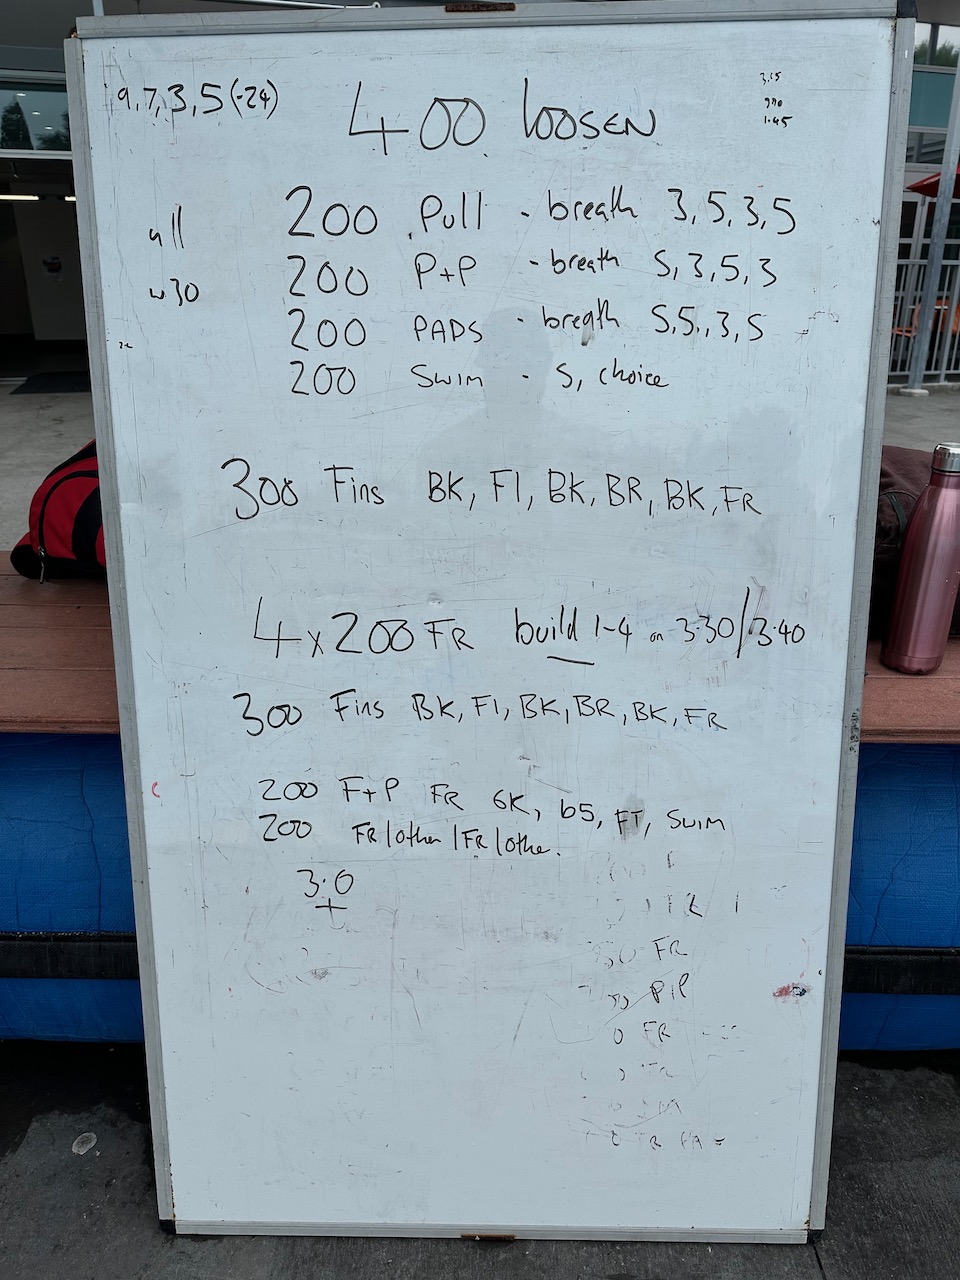 9,7,3,5(-24)
400 loosen
3.15
1.45
all
w30
200 Pull - breath 3,5,3,5
200 P+P - breath 5,3,5,3
200 PADS - breath 5,5,3,5
200 Swim - S, choice
300 Fins BK, Fl, BK, BR, BK, FR
4x200 FR build 1-4 on 3.30/3.40
300 Fins BK, Fl, BK, BR, BK, FR
200 F+P FR 6K, b5, FT, Swim
200 FR/other/FR/othe.
3.0
FR
P+P
FR